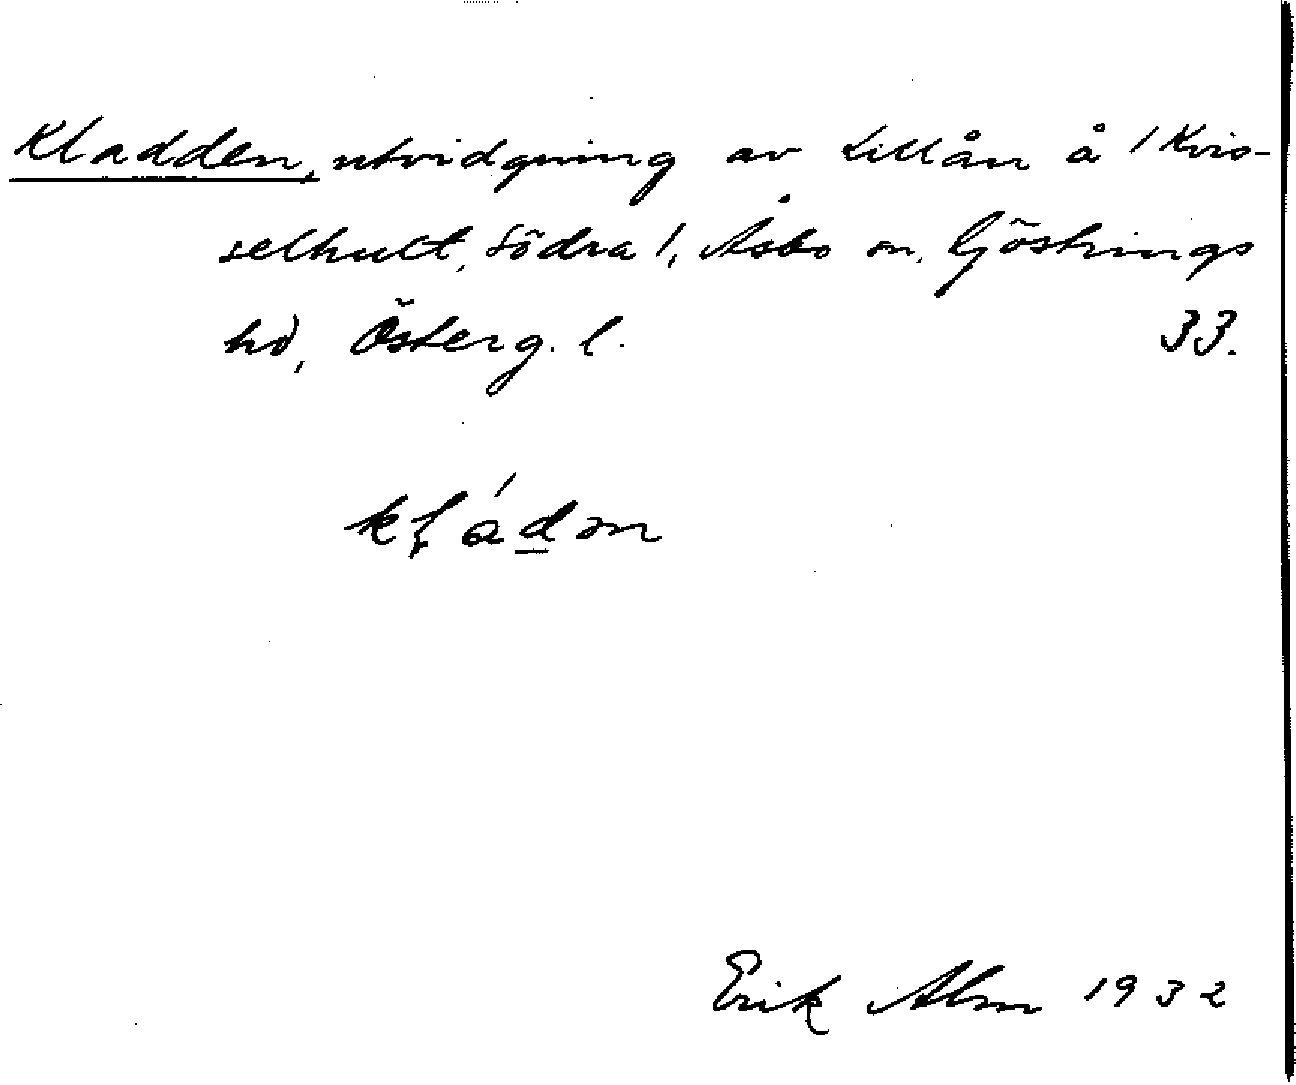 Kladden, utvidgning av Lillån å 1 Kvis-
selhult, Södra 1, Åsbo sn, Göstrings
hd, Österg. l. 33.
Erik Alm 1932